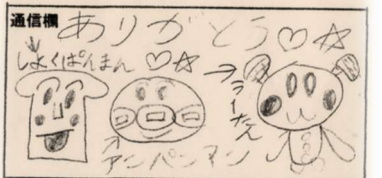 通信欄
ありがとう♡☆
しょくぱんまん♡☆
→フラーたん
アンパンマン